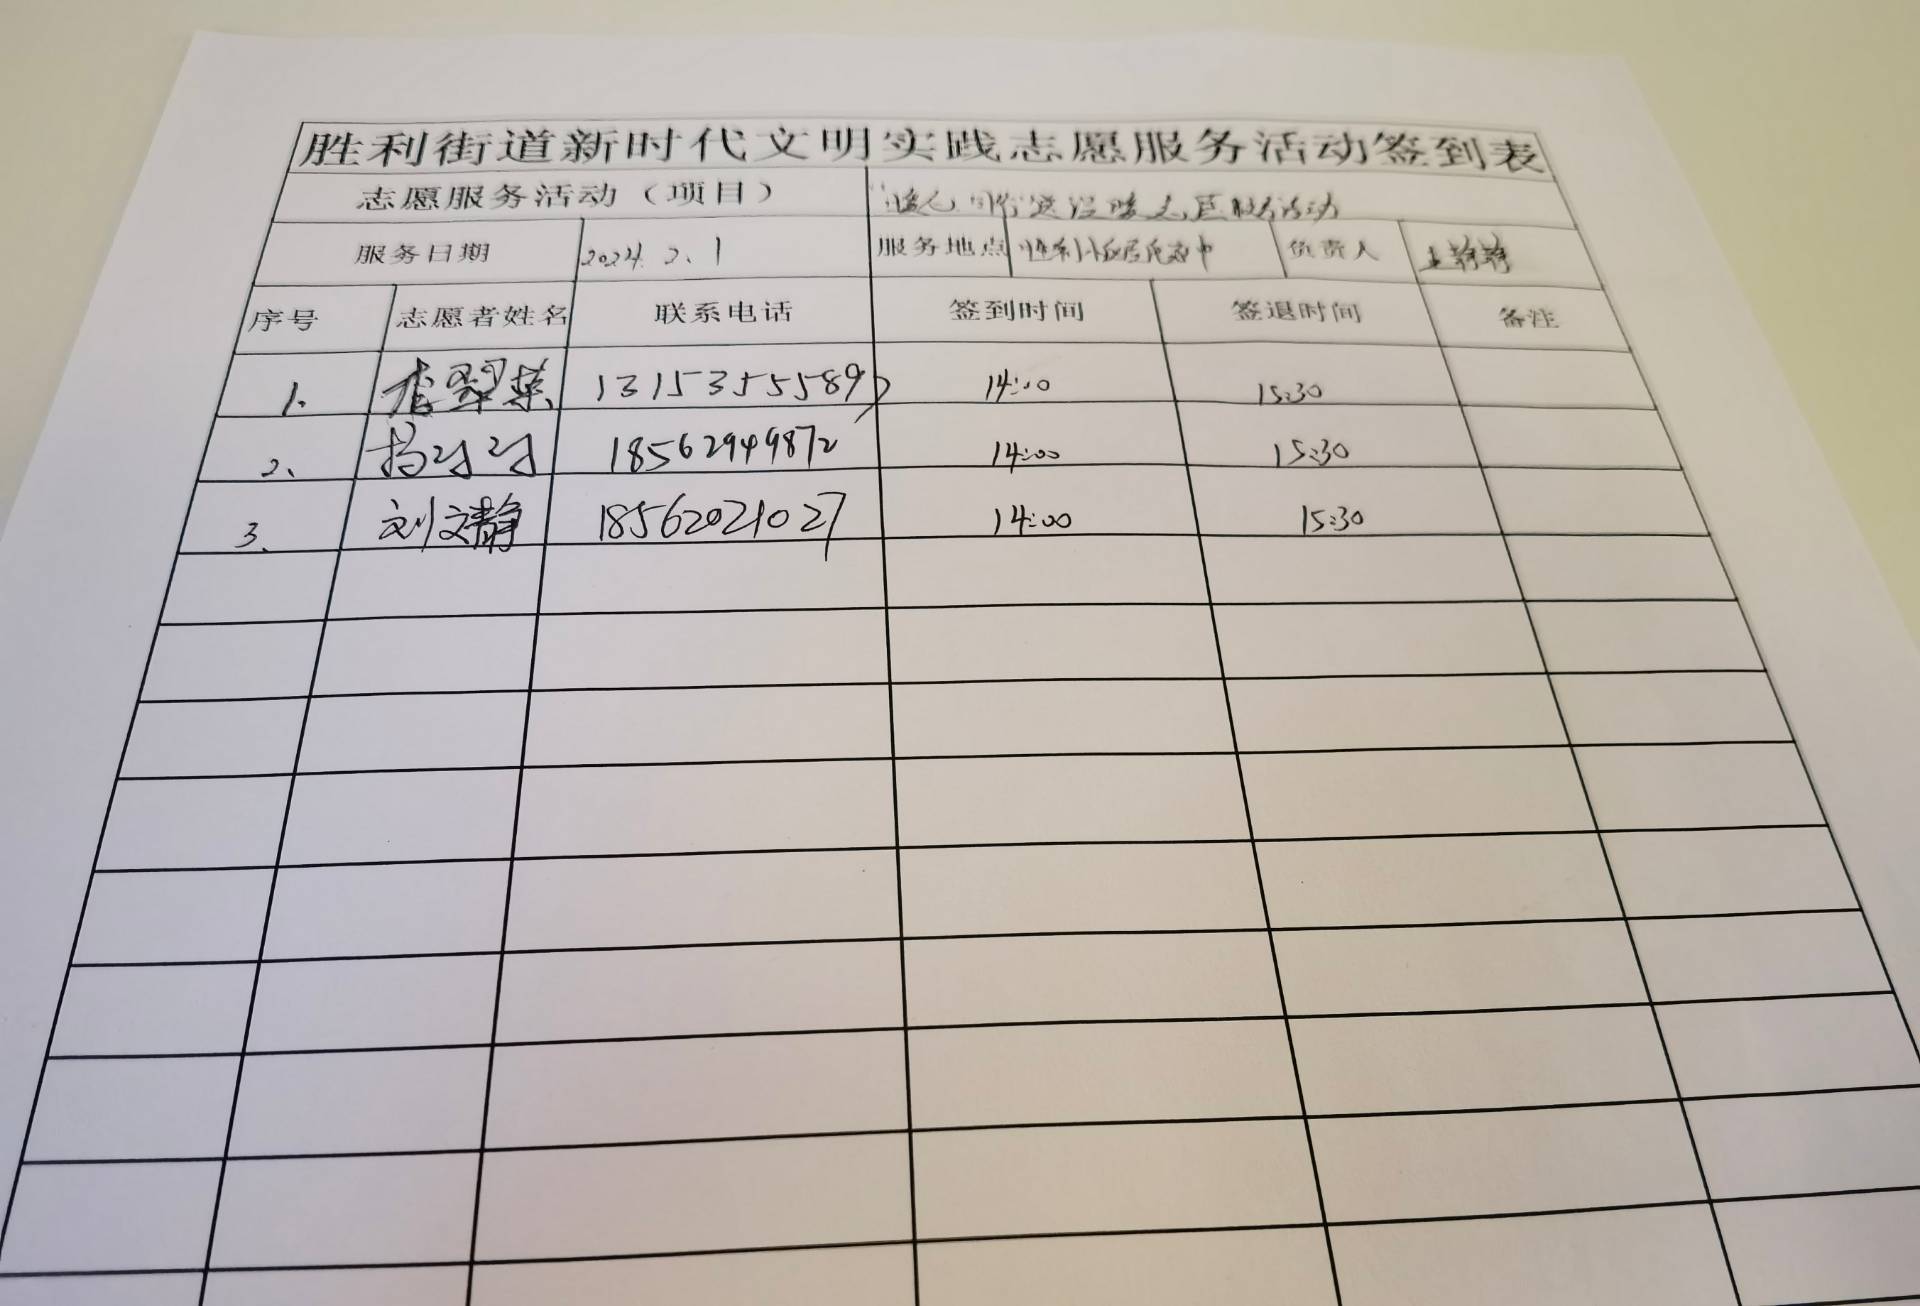 胜利街道新时代文明实践志愿服务活动签到表
志愿服务活动（项目） 志愿服务活动
服务日期 2024.2.1 服务地点 负责人 王静静
序号 志愿者姓名 联系电话 签到时间 签退时间 备注
1. 翠荣 13153555897 14:00 15:30
2、 杨 18562949872 14:00 15:30
3、 刘文静 18562021027 14:00 15:30